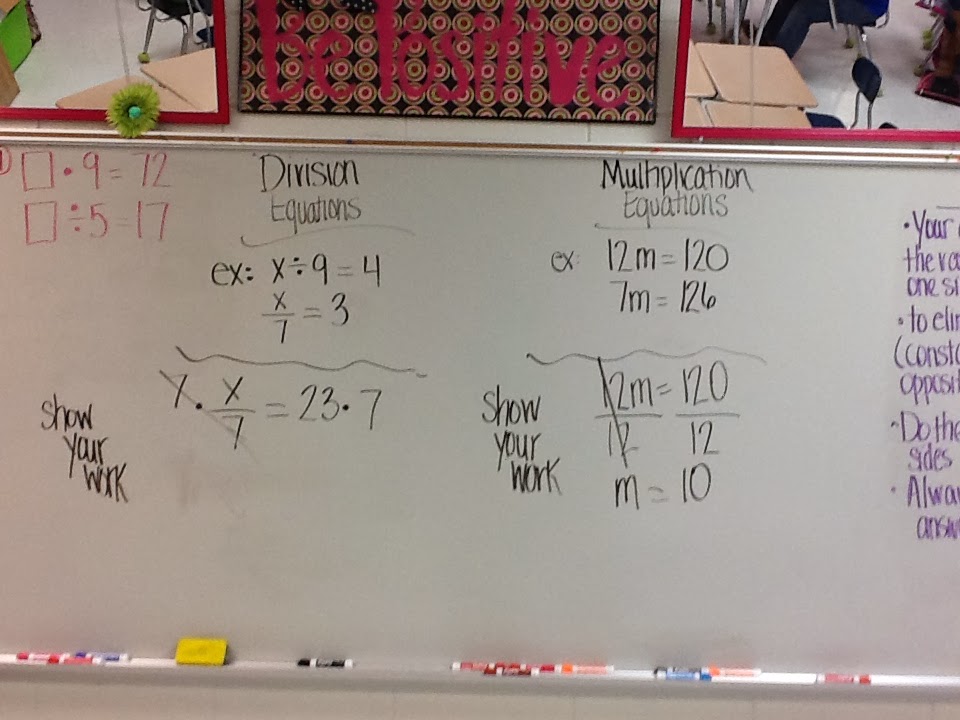 be Positive
1) □ · 9 = 72
□ ÷ 5 = 17
Division
Equations
ex: x ÷ 9 = 4
x/7 = 3
Show
your
work
7 · x/7 = 23 · 7
Multiplication
Equations
ex: 12m = 120
7m = 126
Show
your
work
12m/12 = 120/12
m = 10
· Your
the
one
· to
· Do the
sides
·